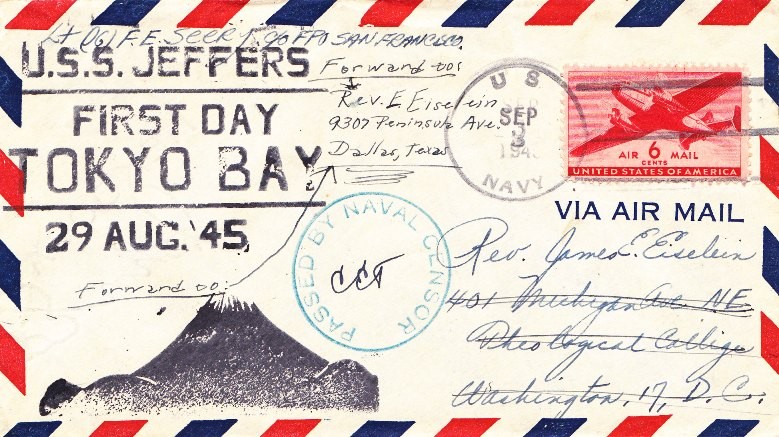 Lt (JG) F. E. SEERY, c/o FPO SAN FRANCISCO.
U.S.S. JEFFERS
FIRST DAY
TOKYO BAY
29 AUG. '45
Forward to:
Forward to:
Rev. E. Eiselein
9307 Peninsula Ave.
Dallas, Texas
U S
SEP
3
194
NAVY
AIR 6 MAIL
CENTS
UNITED STATES OF AMERICA
VIA AIR MAIL
PASSED BY NAVAL CENSOR
Rev. James E. Eiselein
401 Michigan Ave NE
Theological College
Washington, 17, D. C.